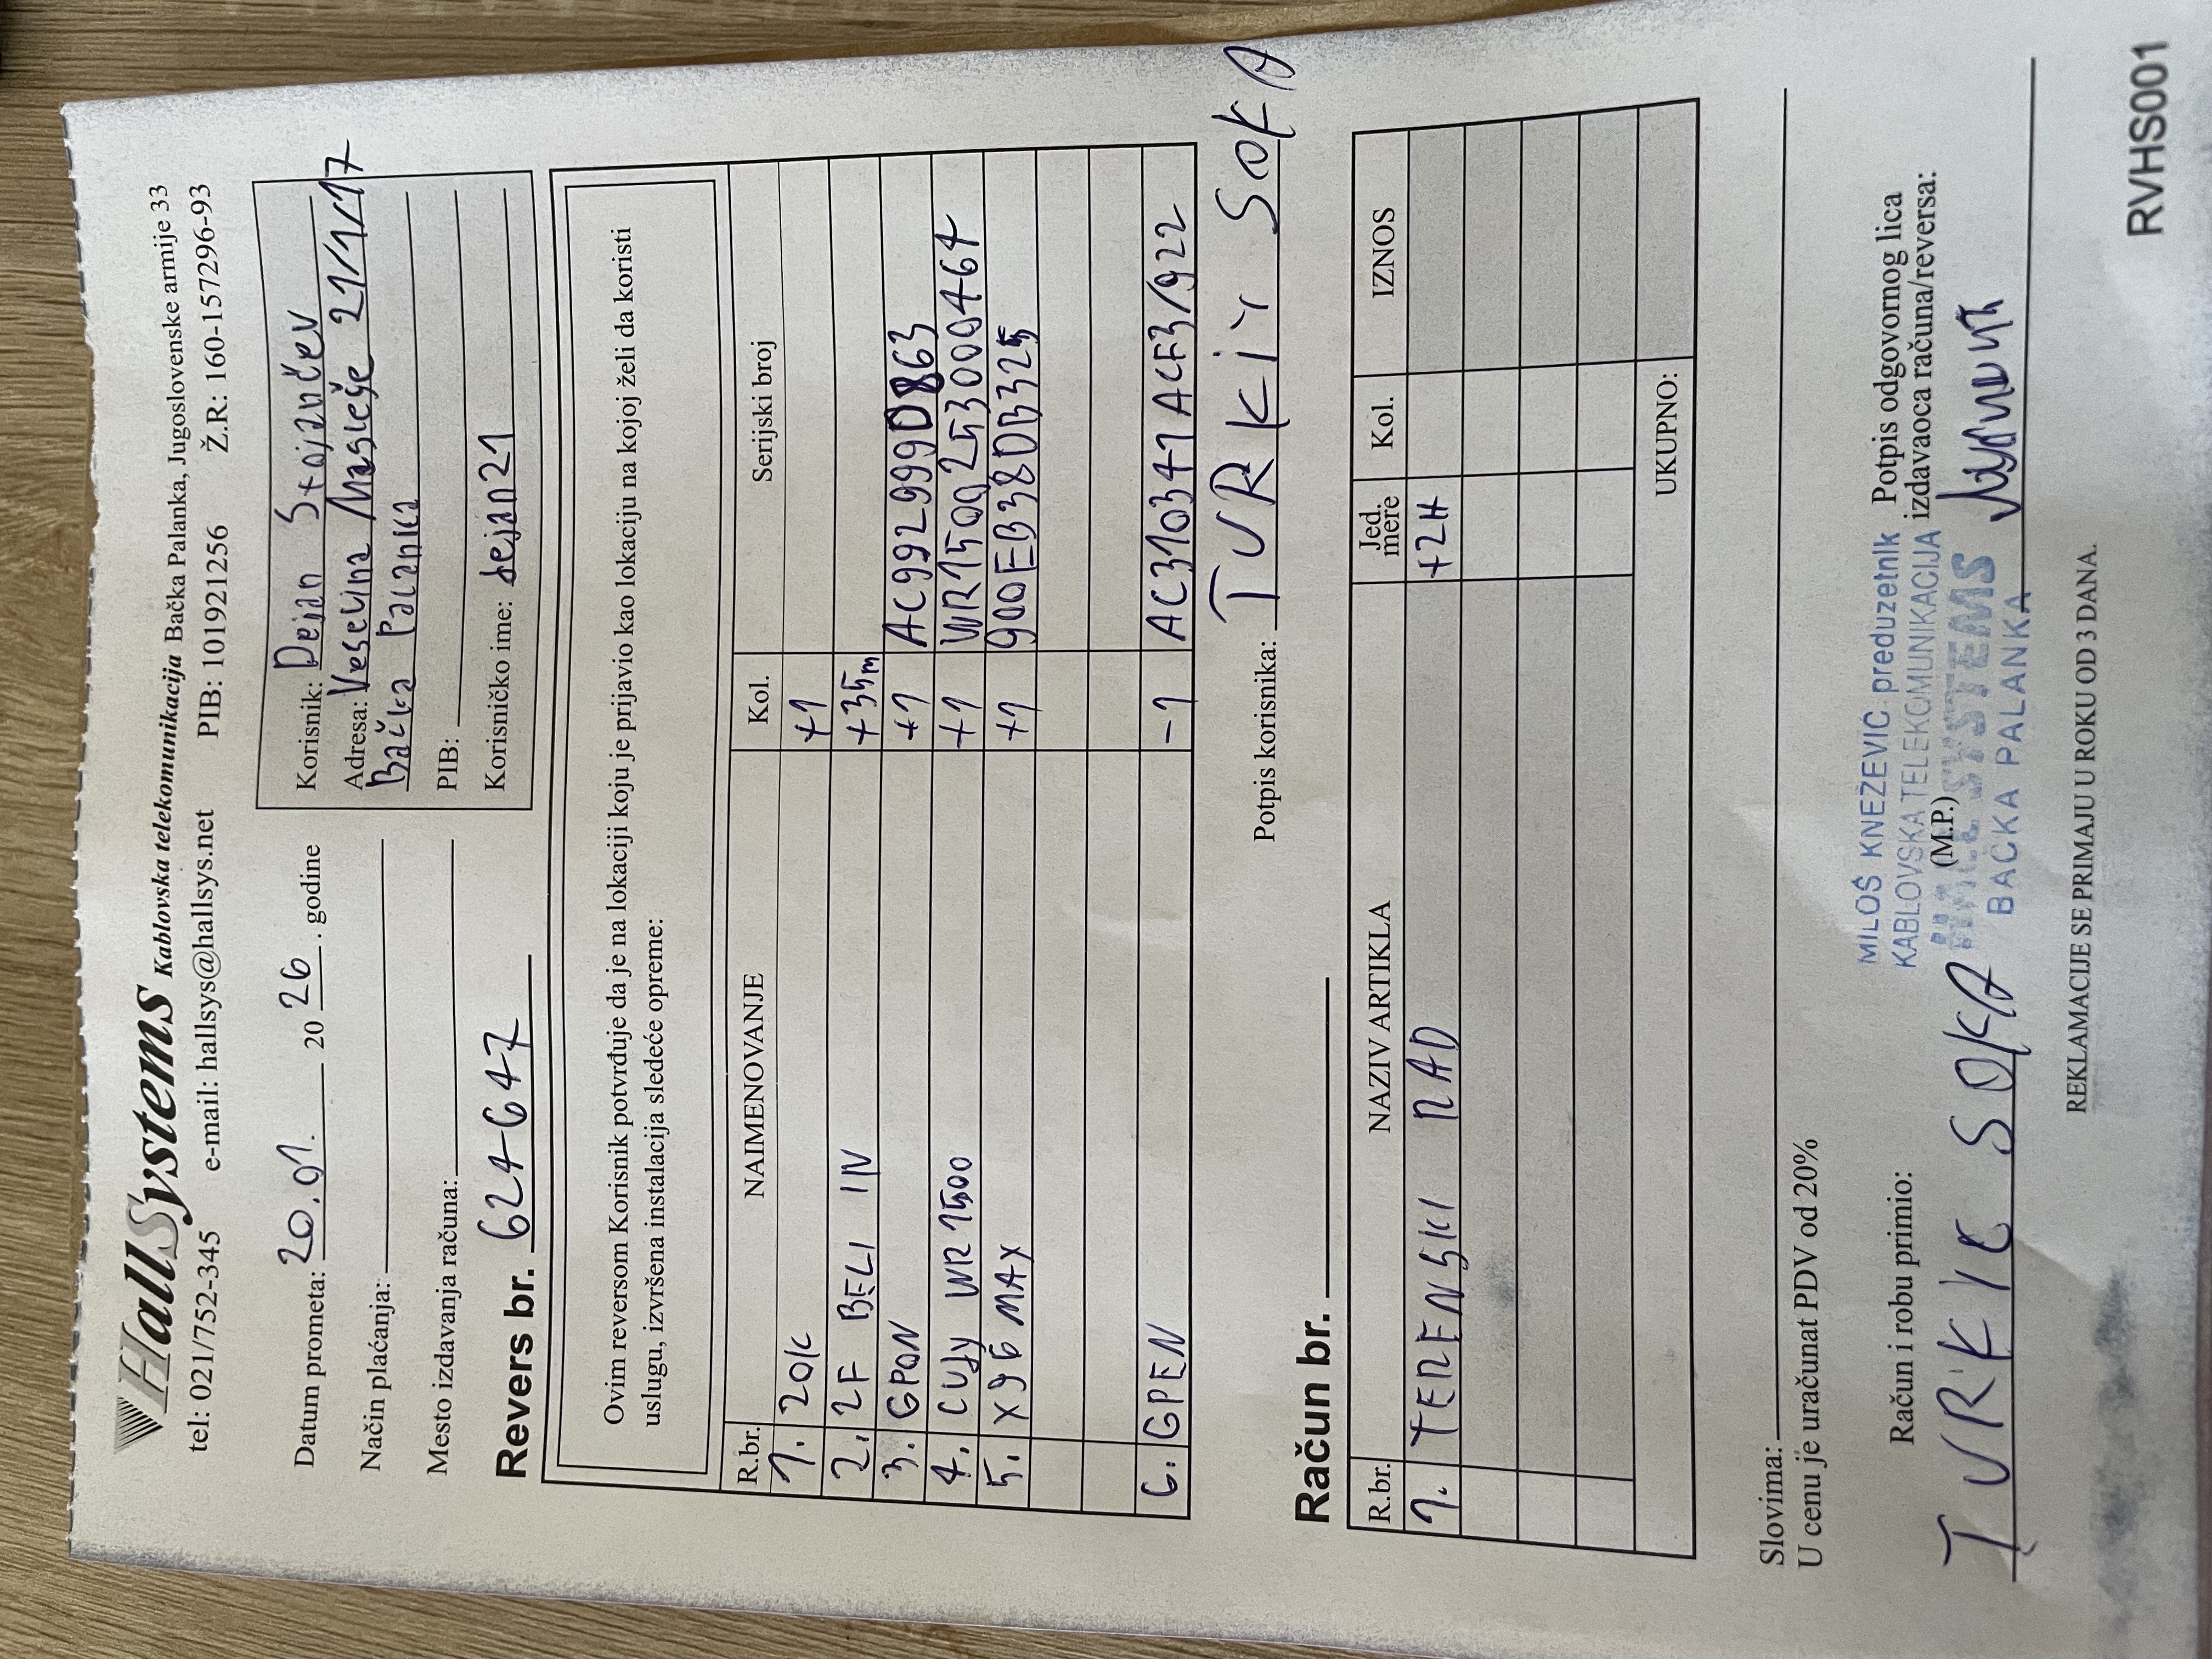 HallSystems Kablovska telekomunikacija Bačka Palanka, Jugoslovenske armije 33
tel: 021/752-345 e-mail: hallsys@hallsys.net PIB: 101921256 Ž.R: 160-157296-93
Datum prometa: 20.01. 2026. godine
Način plaćanja:
Mesto izdavanja računa:
Revers br. 624647
Korisnik: Dejan Stojančev
Adresa: Veselina Masleše 21/1/17
Bačka Palanka
PIB:
Korisničko ime: dejan21
Ovim reversom Korisnik potvrđuje da je na lokaciji koju je prijavio kao lokaciju na kojoj želi da koristi
uslugu, izvršena instalacija sledeće opreme:
R.br. NAIMENOVANJE Kol. Serijski broj
1. ZOK +1
2. 2F BELI IN +35m
3. GPON +1 AC992999D863
4. CUDY WR1500 +1 WR1500253000464
5. X96 MAX +1 900EB38DB325
6. GPEN -1 AC310341ACF3/922
Potpis korisnika: TURKIY SOKA
Račun br.
R.br. NAZIV ARTIKLA Jed. mere Kol. IZNOS
1. TERENSKI RAD +2H
UKUPNO:
Slovima:
U cenu je uračunat PDV od 20%
Račun i robu primio:
TURKIC SOKA
MILOŠ KNEŽEVIĆ preduzetnik
KABLOVSKA TELEKOMUNIKACIJA
(M.P.)
HALL SYSTEMS
BAČKA PALANKA
Potpis odgovornog lica
izdavaoca računa/reversa:
REKLAMACIJE SE PRIMAJU U ROKU OD 3 DANA.
RVHS001